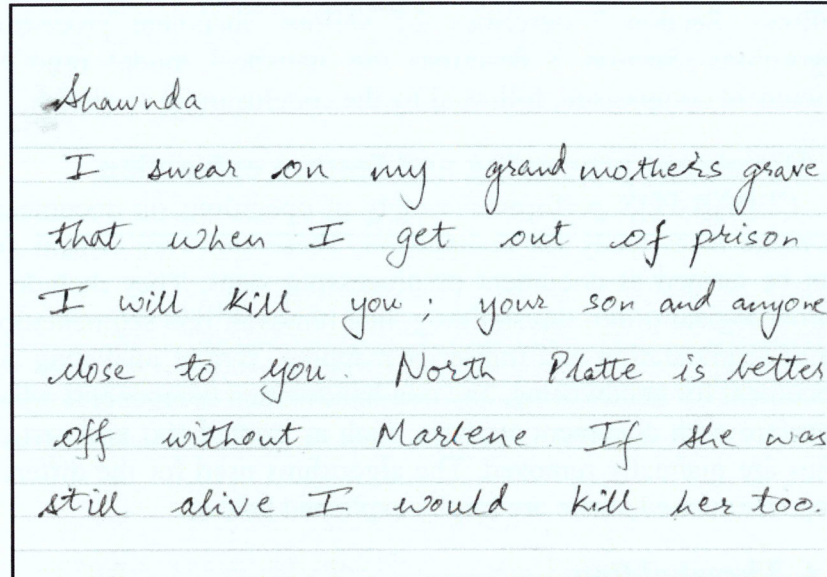 Shawnda
I swear on my grandmothers grave
that when I get out of prison
I will kill you; your son and anyone
close to you. North Platte is better
off without Marlene. If she was
still alive I would kill her too.